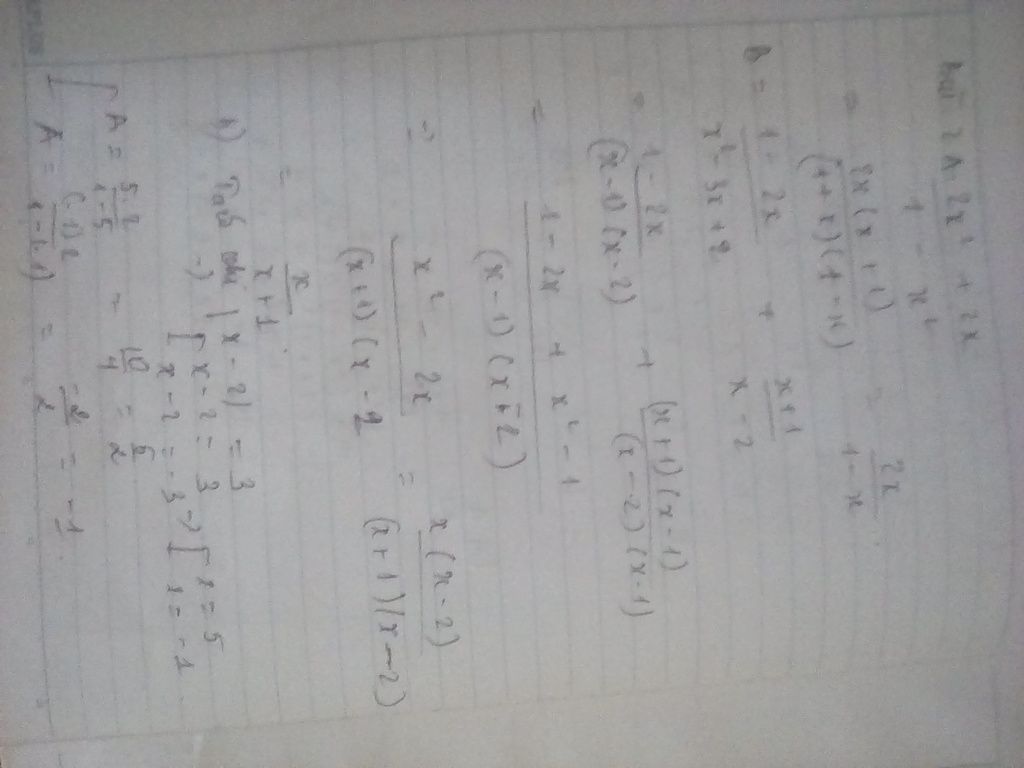 Bài 2 A = (2x² + 2x)/(1 - x²)
= 2x(x + 1)/((1 + x)(1 - x)) = 2x/(1 - x).
B = (1 - 2x)/(x² - 3x + 2) + (x + 1)/(x - 2)
= (1 - 2x)/((x - 1)(x - 2)) + (x + 1)(x - 1)/((x - 2)(x - 1))
= (1 - 2x + x² - 1)/((x - 1)(x - 2))
=> (x² - 2x)/((x + 1)(x - 2 = x(x - 2)/((x + 1)(x - 2))
= x/(x + 1).
b) |x - 2| = 3
-> [ x - 2 = 3
x - 2 = -3 -> [ x = 5
x = -1
A = 5.2/(1 - 5) = 10/4 = 5/2
A = (-1)2/(1 - (-1)) = -2/2 = -1.